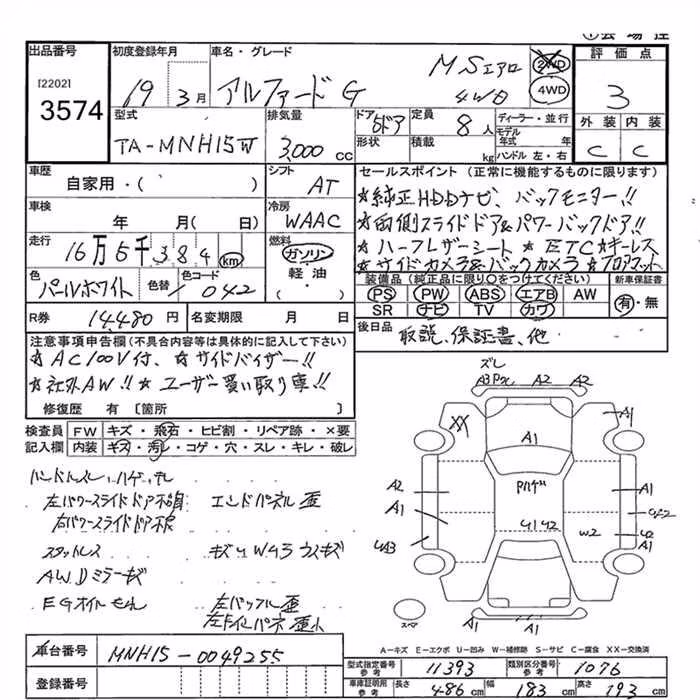 出品番号 初度登録年月 車名・グレード 評価点
[2202] 3574
19 3月 アルファードG MSエアロ 4WD 2WD 4WD
3
型式 排気量 ドア 定員 ディーラー・並行 外装 内装
TA-MNH15W 3,000cc 5ドア 8人 モデル年式 年
形状 積載 kg ハンドル 左・右 C C
車歴 シフト セールスポイント(正常に機能するものに限ります)
自家用・( ) AT ☆純正HDDナビ、バックモニター!!
車検 冷房 ☆両側スライドドア&パワーバックドア!!
年 月( 日) WAAC ☆ハーフレザーシート ☆ETC☆キーレス
走行 燃料 ☆サイドカメラ&バックカメラ ☆フロアマット
16万5千384km ガソリン 軽油・( )
装備品(純正品に限り○をつけてください) 新車保証書
色 色替 色コード
パールホワイト / 042
PS PW ABS エアB AW 有・無
SR ナビ TV カワ
R券 14,480円 名変期限 月 日
後日品 取説、保証書、他
注意事項申告欄(不具合内容等は具体的に記入して下さい)
☆AC100V付、☆サイドバイザー!!
☆社外AW!!☆ユーザー買い取り車!!
修復歴 有〔箇所 〕
検査員 FW キズ・飛石・ヒビ割・リペア跡・×要
記入欄 内装 キズ・汚れ・コゲ・穴・スレ・キレ・破レ
ハンドルスレ・ハゲ
左パワースライドドア不良 エンドパネル歪
右パワースライドドア不良
スタッドレス
AWDミラーキズ
EGオイルもれ 左バッフル歪
ズレ
A3 A2 A2
XX A1
A1
A2 Pハゲ A1
A1
U1 U2 W2 U2
UA3 A1
スペア
A1
A-キズ E-エクボ U-凹み W-補修跡 S-サビ C-腐食 XX-交換済
車台番号 MNH15-0049255
型式指定番号 参考 11393 類別区分番号 参考 1076
登録番号
車庫証明用 参考 長さ 486cm 幅 183cm 高さ 193cm